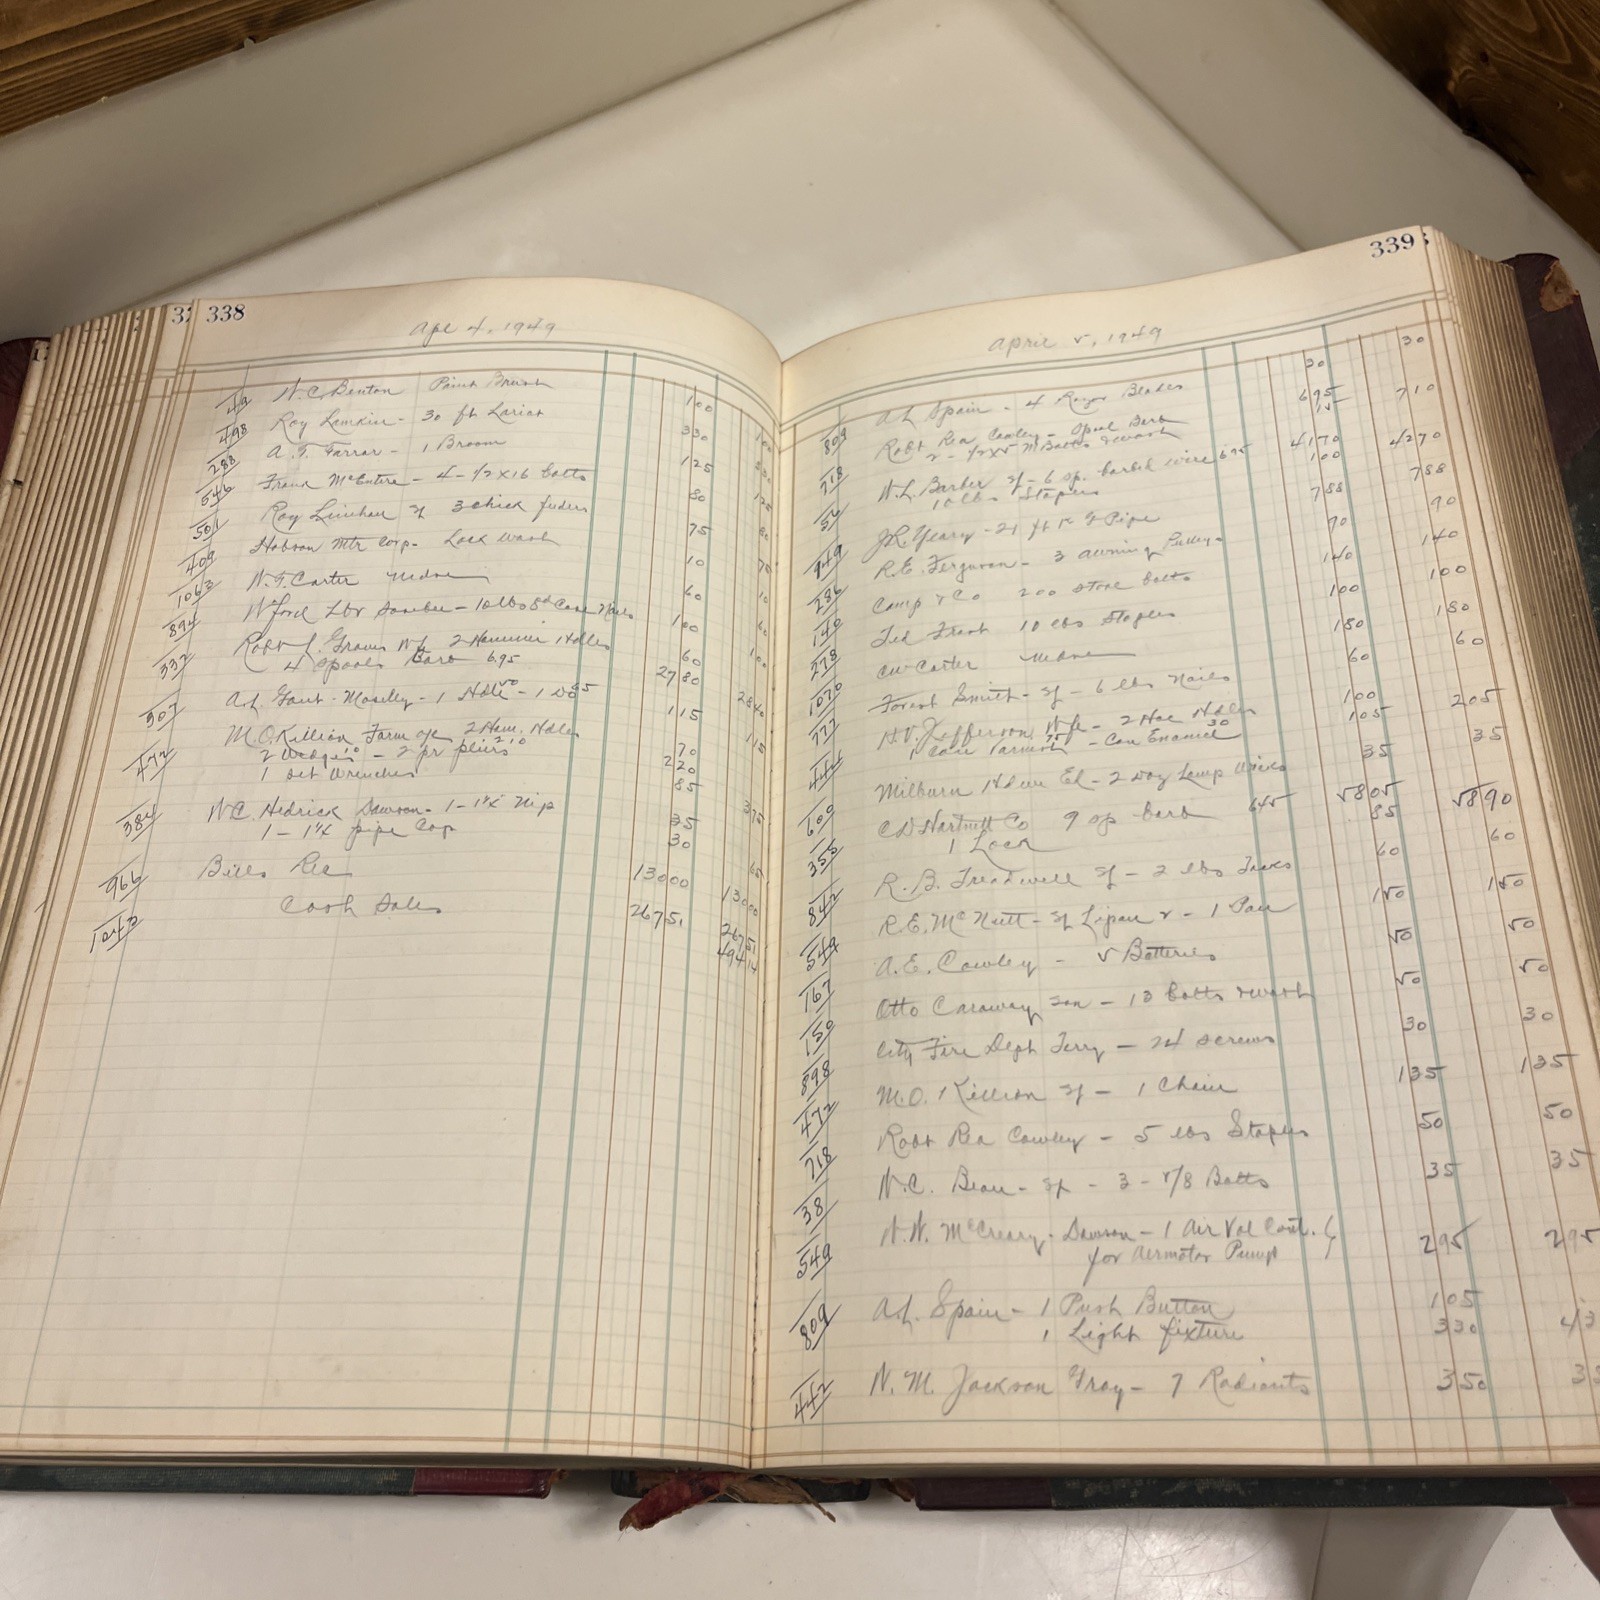 338
Apl 4, 1949
49 N.C. Benton Paint Brush 100 100
498 Roy Lamkin - 30 ft Lariat 330
288 A.F. Farrar - 1 Broom 125 125
546 Frank McEntire - 4 - 1/2 x 16 bolts 80 80
501 Roy Linehan 3 chick feders 75 75
409 Hobson Mtr Corp - Lock Wash 10 10
1063 N.F. Carter Mdse 60 60
894 W'ford Lbr - 10 lbs 8d Case Nails 100 100
337 Robt L. Graves Wf 2 Hammer Hdles 60
4 Spools Barb 6.95 2780 2840
307 A.L. Gant - Moselly - 1 Hdle 50 - 1 Do 65 115 115
472 M.O. Killion Farm 2 Ham. Hdles 70
2 Wedges 10 - 2 pr pliers 210 220
1 Set Wrenches 85 375
384 N.C. Hedrick Dawson - 1 - 1 1/4 Nip 35
1 - 1 1/4 pipe Cap 30 65
966 Bills Rec 13000 13000
1042 Cash Sales 26751 26751
49414
339
April 5, 1949
809 A.L. Spain - 4 Razor Blades 30 30
718 Robt Rea Cowley - Spool Barb 695
2 - 1/2 x 5 M Bolts & Wash 15 710
56 N.L. Barber - 6 sp. barbed wire 695 4170 4270
10 lbs Staples 100
949 J.R. Yeary - 21 ft Pipe 788 788
286 R.E. Ferguson - 3 awning Pulley 90 90
140 Camp & Co 200 stove bolts 140 140
278 Ted Frank 10 lbs Staples 100 100
1070 CW Carter Mdse 180 180
777 Forest Smith - 6 lbs Nails 60 60
H.V. Jefferson Wf - 2 Hoe Hdles 100
1 Can Varnish 75 - Can Enamel 30 105 205
609 Milburn Hdwe El - 2 Doz Lamp Wicks 35 35
355 C.D. Hartnett Co 9 sp barb 645 5805
1 Lock 85 5890
842 R.B. Treadwell - 2 lbs Tacks 60 60
549 R.E. McNutt - Lipan - 1 Pan 150 150
167 A.E. Cowley - 5 Batteries 50 50
150 Otto Caraway son - 10 bolts & wash 50 50
898 City Fire Dept Terry - 24 screws 30 30
472 M.O. Killion - 1 Chain 135 135
718 Robt Rea Cowley - 5 lbs Staples 50 50
38 N.C. - 3 - 5/8 Bolts 35 35
549 N.N. McCreary - Dawson - 1 Air Vol Cont.
for Aermotor Pump 295 295
809 A.L. Spain - 1 Push Button 105
1 Light fixture 330
442 N.M. Jackson Gray - 7 Radiants 350